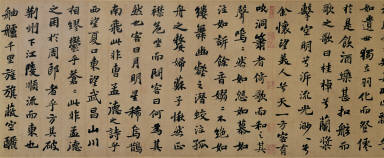 如遺世獨立羽化而登僊
於是飲酒樂甚扣舷而
歌之歌曰桂棹兮蘭槳
擊空明兮泝流光渺渺兮
余懷望美人兮天一方客有
吹洞簫者倚歌而和之其
聲嗚嗚然如怨如慕如
泣如訴餘音嫋嫋不絕如
縷舞幽壑之潛蛟泣孤
舟之嫠婦蘇子愀然正
襟危坐而問客曰何為其
然也客曰月明星稀烏鵲
南飛此非曹孟德之詩乎
西望夏口東望武昌山川
相繆鬱乎蒼蒼此非孟德
之困於周郎者乎方其破
荊州下江陵順流而東也
舳艫千里旌旗蔽空釃